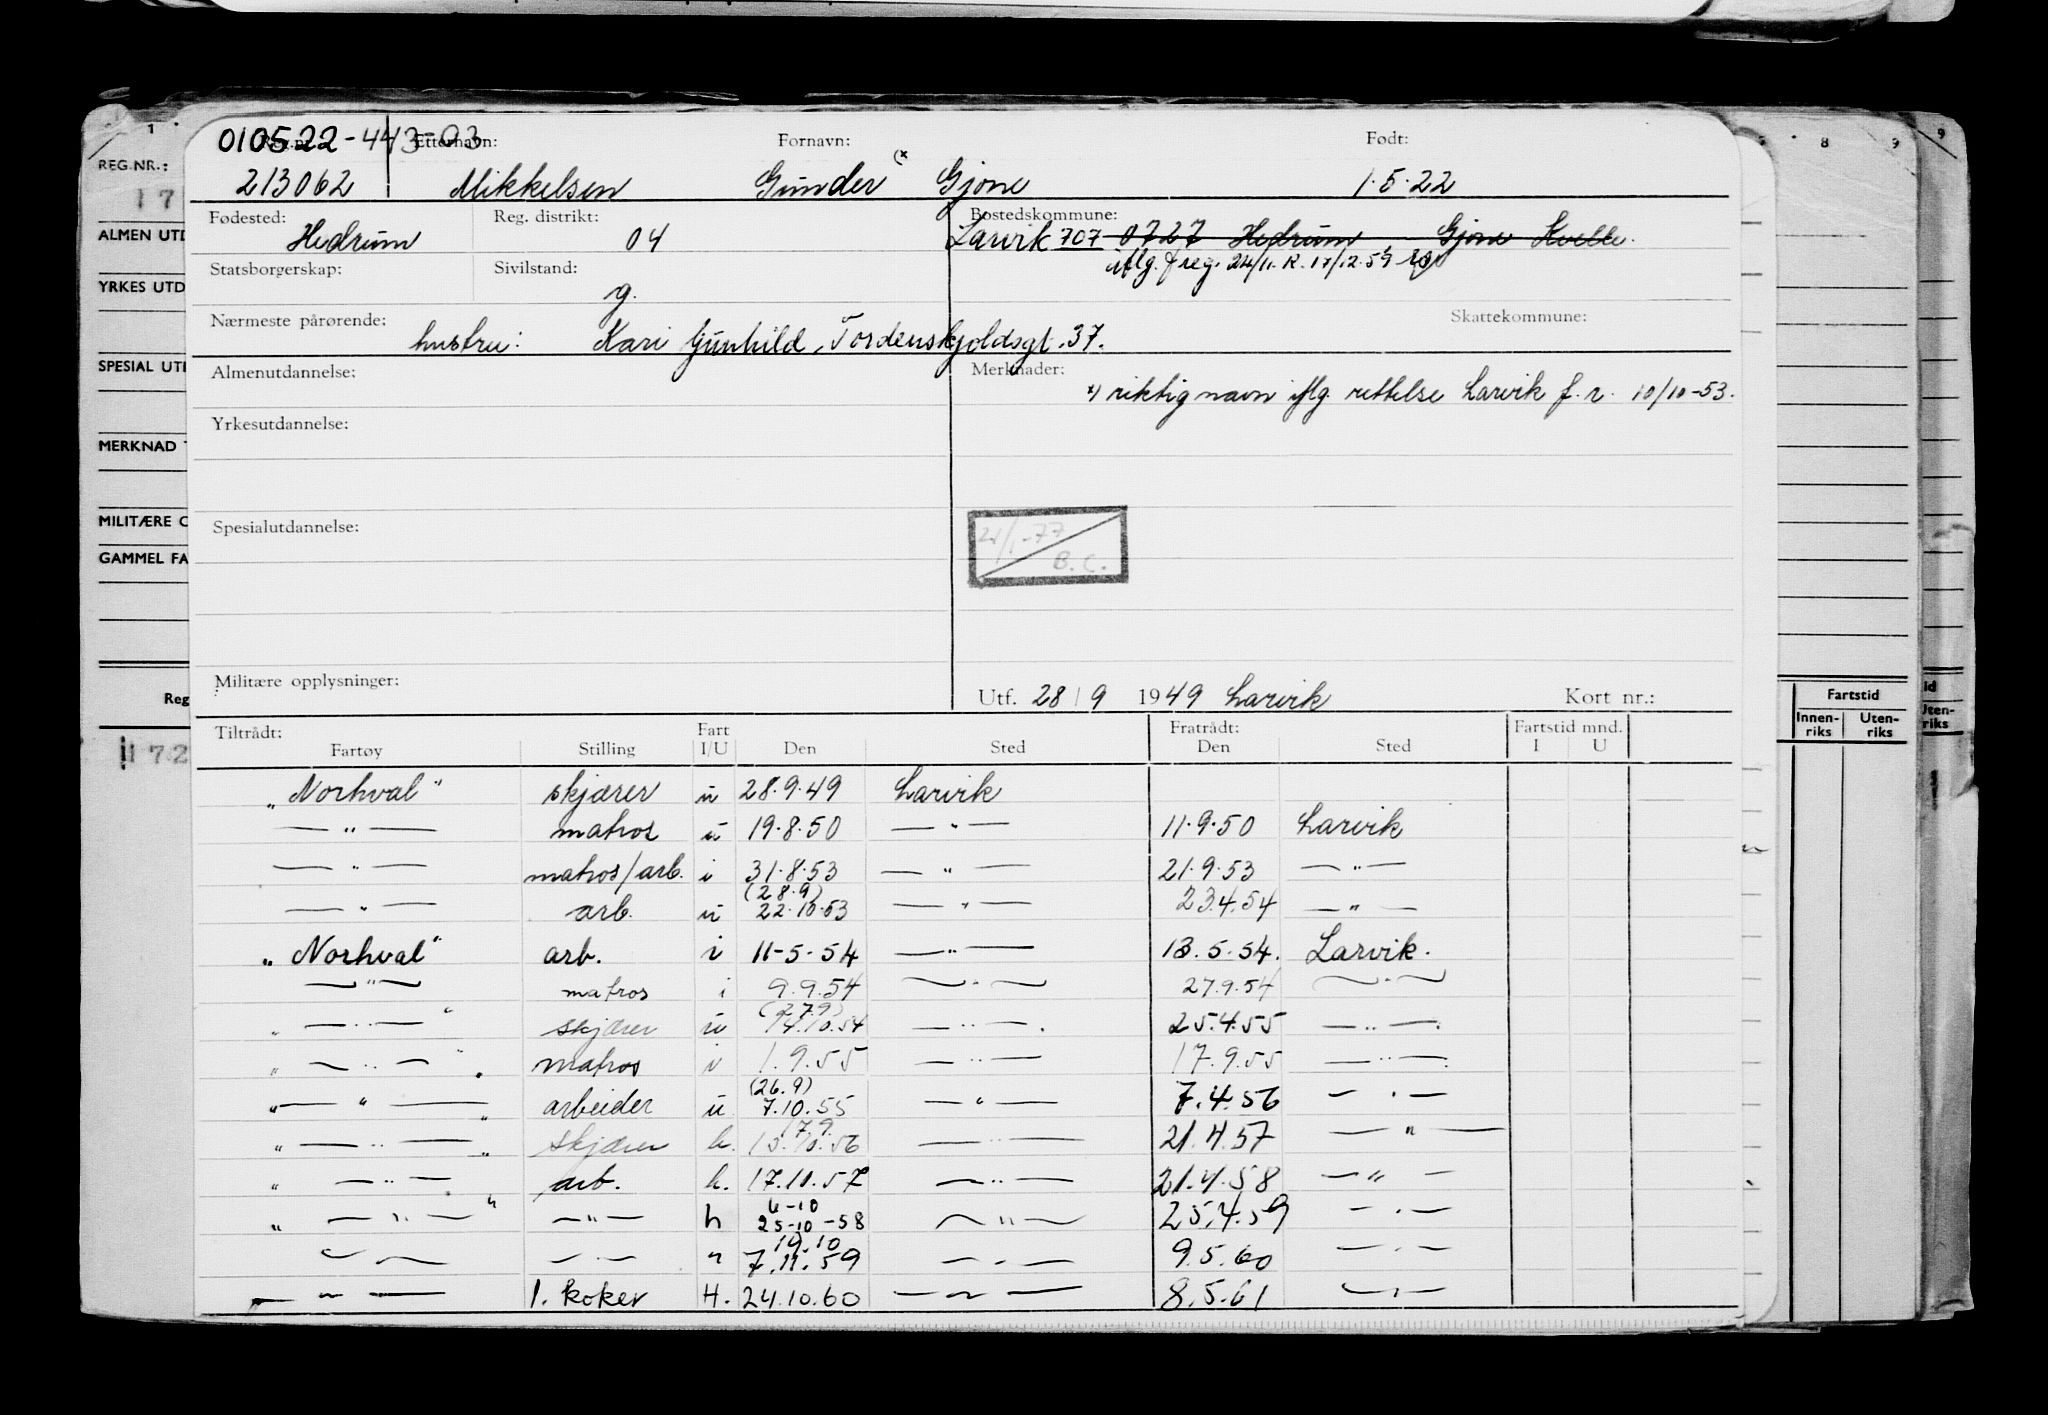 1 8 9 9
010522-443-03
Reg.nr. Etternavn: Fornavn: Født:
213062 Mikkelsen Gunder (x Gjone 1.5.22
Fødested: Reg. distrikt: Bostedskommune:
Hedrum 04 Larvik 707 0727 Hedrum Gjone Kvelle.
Statsborgerskap: Sivilstand: iflg. f reg. 24/11. R. 17/12.59
g.
Nærmeste pårørende: Skattekommune:
hustru: Kari Gunhild, Tordenskjoldsgt. 37.
Almenutdannelse: Merknader:
x) riktig navn iflg. rettelse Larvik f. r. 10/10-53.
Yrkesutdannelse:
Spesialutdannelse:
21/1-77
B.C.
Militære opplysninger: Utf. 28/9 1949 Larvik Kort nr.:
Tiltrådt: Fart Fratrådt: Fartstid mnd.
Fartøy Stilling I/U Den Sted Den Sted I U
„Norhval" skjærer u 28.9.49 Larvik
— " — matros u 19.8.50 — " — 11.9.50 Larvik
— " — matros/arb. i 31.8.53 — " — 21.9.53 — " —
(28.9)
— " — arb. u 22.10.53 — " — 23.4.54 — " —
„Norhval" arb. i 11-5-54 — " — 13.5.54. Larvik.
— " — matros i 9.9.54 — " — 27.9.54 — " —
(27.9)
„ — " — " skjærer u 14.10.54 — " — . 25.4.55 — " — .
„ — " — " . matros i 1.9.55 — " — 17.9.55 — " — .
(26.9)
„ — " — " arbeider u 7.10.55 — " — 7.4.56 — " —
17.9.
„ — " — " skjærer h. 13.10.56 — " — 21.4.57 — " —
„ — " — arb. h. 17.10.57 — " — 21.4.58 — " —
6-10
„ — " — " — " — h 25-10-58 — " — 25.4.59 — " —
19.10
— " — — " — h 7.11.59 — " — 9.5.60 — " —
— " — 1. koker H. 24.10.60 — " — 8.5.61 — " —
REG.NR.:
17
ALMEN UTD
YRKES UTD
SPECIAL UTD
MERKNAD
MILITÆRE O
GAMMEL FA
Reg
172
Fartstid
Innen-
riks
Uten-
riks
Uten-
riks